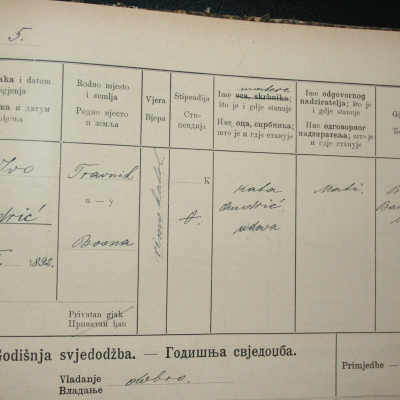 5.
aka i datum
ogjenja
на и датум
ођења
Rodno mjesto
i zemlja
Родно мјесто
и земља
Vjera
Вјера
Stipendija
Сти-
пендија
matere
Ime oca, skrbnika;
što je i gdje stanuje
Име оца, скрбника;
што је и гдје станује
Ime odgovornog
nadziratelja; što je
i gdje stanuje
Име одговорног
надзиратеља; што је
и гдје станује
Ivo
drić
1892.
Travnik
u — y
Bosna
K
Kata
Andrić,
udova
Mati
Privatan gjak
Приватан ђак
Godišnja svjedodžba. — Годишња свједоџба.
Vladanje
Владање
dobro.
Primjedbe —